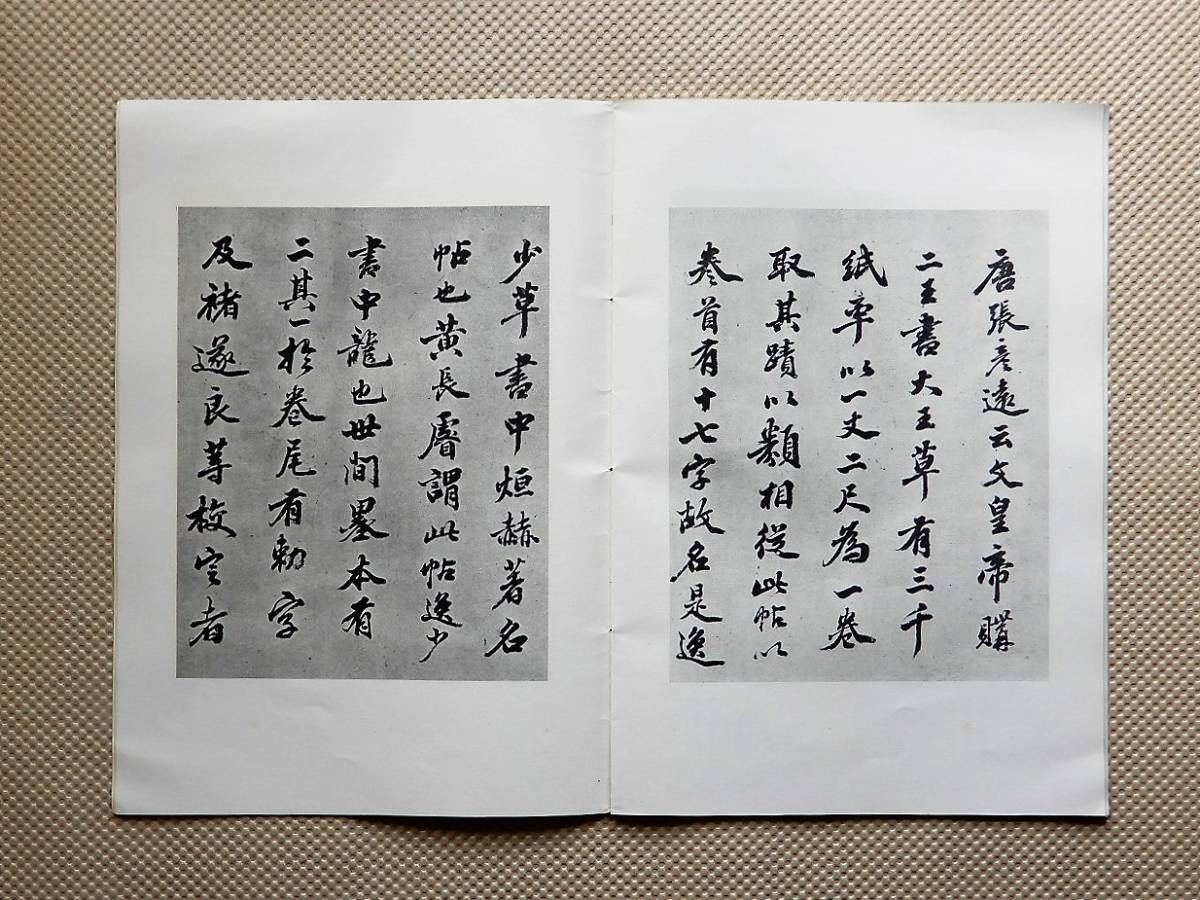 唐張彦遠云文皇帝購
二王書大王草有三千
紙率以一丈二尺為一卷
取其蹟以類相從此帖以
卷首有十七字故名是逸
少草書中烜赫著名
帖也黄長睿謂此帖逸少
書中龍也世間墨本有
二其一於卷尾有勅字
及褚遂良等校定者